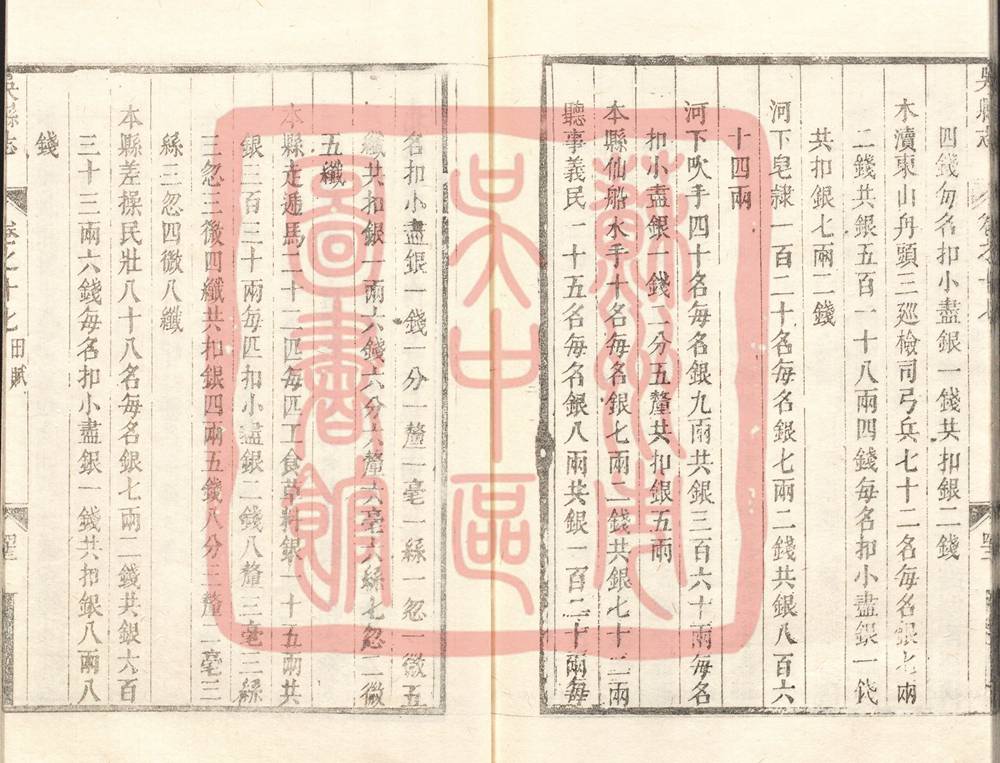 四錢每名扣小盡銀一錢共扣銀二錢
木瀆東山甪頭三巡檢司弓兵七十二名每名銀七兩
二錢共銀五百一十八兩四錢每名扣小盡銀一錢
共扣銀七兩二錢
河下皂隸一百二十名每名銀七兩二錢共銀八百六
十四兩
河下吹手四十名每名銀九兩共銀三百六十兩每名
扣小盡銀一錢二分五釐共扣銀五兩
本縣仙船水手十名每名銀七兩二錢共銀七十二兩
聽事義民一十五名每名銀八兩共銀一百二十兩每
名扣小盡銀一錢一分一釐一毫一絲一忽一微五
纖共扣銀一兩六錢六分六釐六毫六絲七忽二微
五纖
本縣走遞馬二十二匹每匹工食草料銀一十五兩共
銀三百三十兩每匹扣小盡銀二錢八釐三毫三絲
三忽三微四纖共扣銀四兩五錢八分三釐三毫三
絲三忽四微八纖
本縣差操民壯八十八名每名銀七兩二錢共銀六百
三十三兩六錢每名扣小盡銀一錢共扣銀八兩八
錢
吳縣志
卷之十七
田賦
蘇州市
吳中區
圖書館